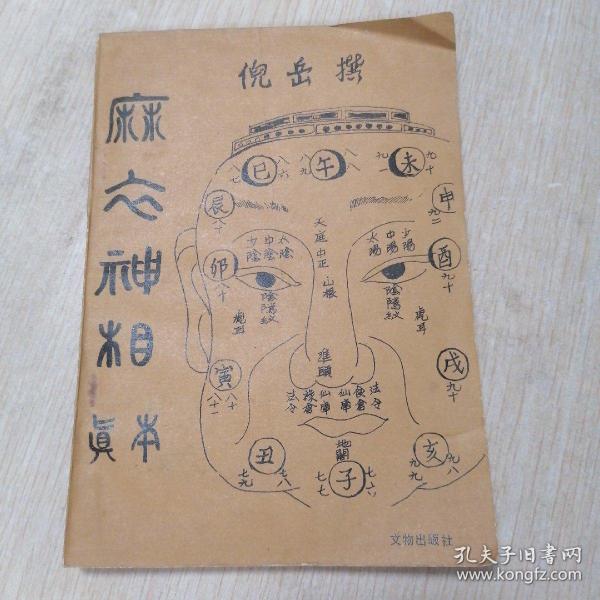 倪岳撰
麻衣神相
真本
巳 午 未
八七 八六 八九 八八 九一 九十
辰 申
九二
卯 酉
少陰 中陰 太陰
太陽 中陽 少陽
天庭 中正
山根
陰騭紋 陰騭紋
虎耳 虎耳
寅 戌
八十一 八十
準頭
法令 仙庫 仙庫 食倉 法令
地閣
丑 子 亥
七九 七八 七七 七六 九九 九八
文物出版社
孔夫子旧书网
www.kongfz.com